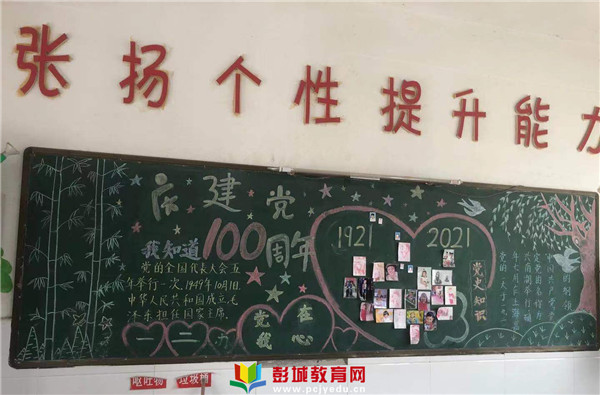 张扬个性提升能力
庆建党
100周年
我知道
党的全国代表大会五
年举行一次,1949年10月1日
中华人民共和国成立,毛
泽东担任国家主席。
一二
党在
我心
1921
2021
党史知识
呕吐物
垃圾桶
彭城教育网
www.pcjyedu.cn